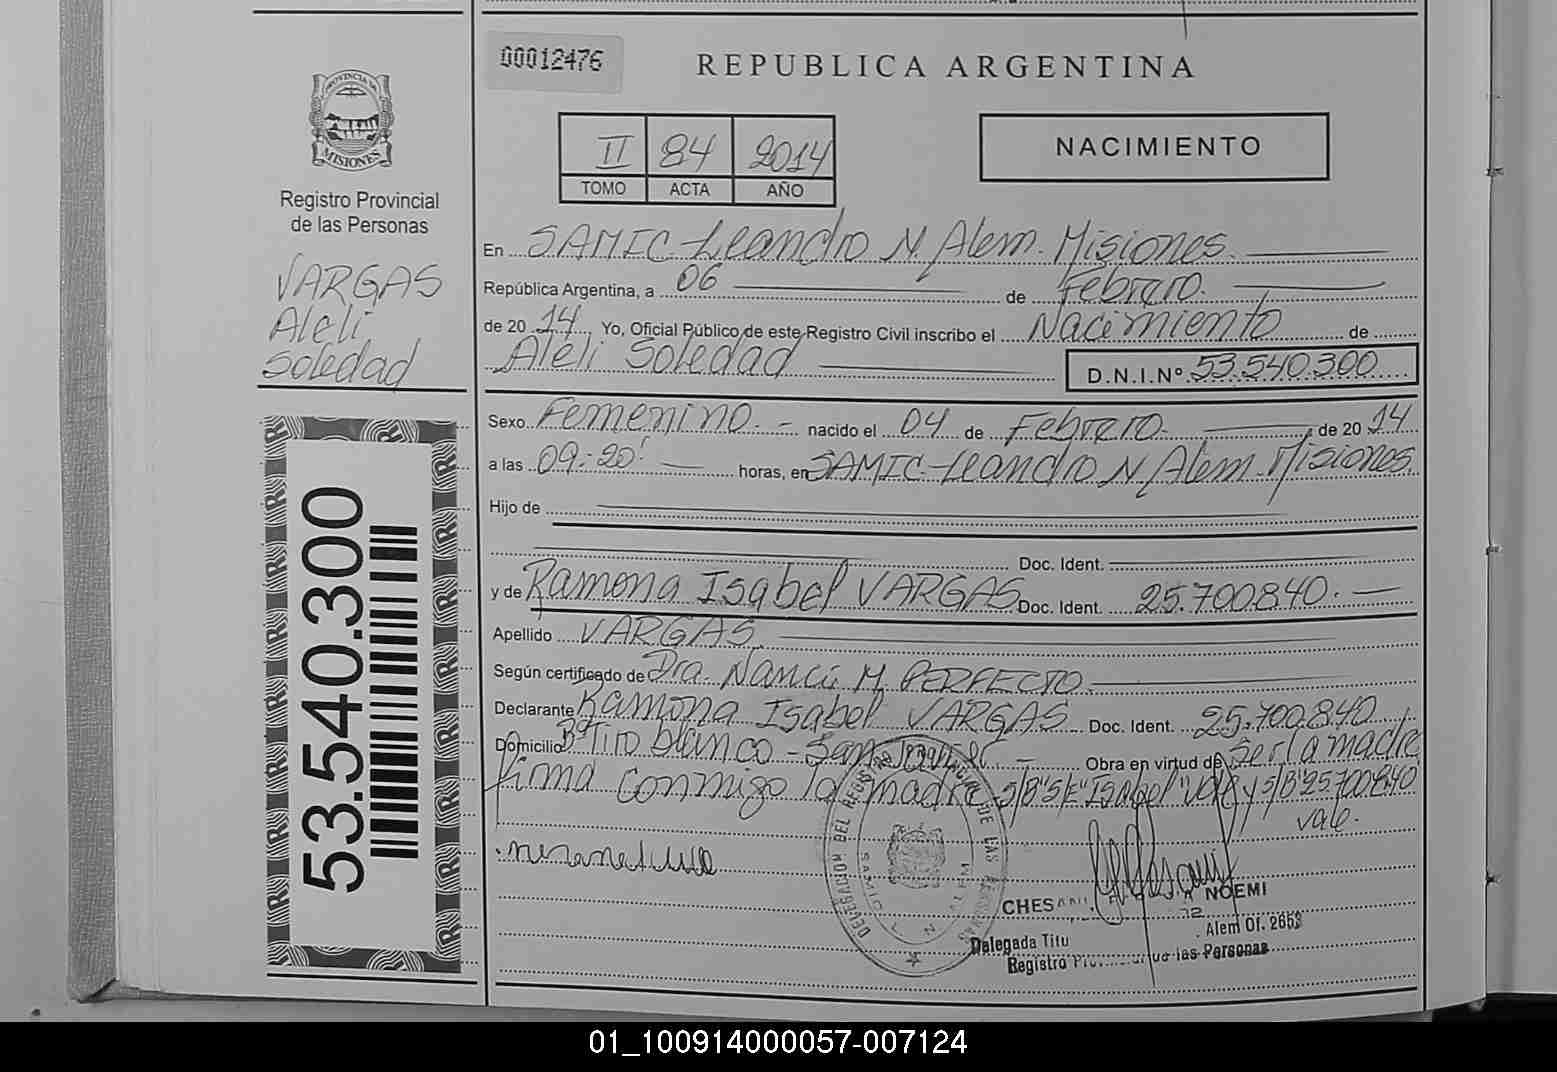 00012476
REPUBLICA ARGENTINA
PROVINCIA DE
MISIONES
Registro Provincial
de las Personas
VARGAS
Aleli
Soledad
II 84 2014
TOMO ACTA AÑO
NACIMIENTO
En SAMIC-Leandro N. Alem-Misiones.
República Argentina, a 06 de Febrero.
de 20 14 Yo, Oficial Público de este Registro Civil inscribo el Nacimiento de
Aleli Soledad D.N.I.Nº 53.540.300
Sexo Femenino.- nacido el 04 de Febrero. de 20 14
a las 09:20' horas, en SAMIC-Leandro N Alem-Misiones.
Hijo de
Doc. Ident.
y de Ramona Isabel VARGAS Doc. Ident. 25.700.840.
Apellido VARGAS
Según certificado de Dra. Nancú M. PERFECTO.
Declarante Ramona Isabel VARGAS Doc. Ident. 25.700.840
Domicilio Bº Tiro blanco - San Javier - Obra en virtud de Ser la madre
firma conmigo la madre, S/B"S/E "Isabel" Vale y S/B"25.700.840
vale.
53.540.300
DELEGACION DEL REGISTRO PROVINCIAL DE LAS PERSONAS
SAMIC L N ALEM
CHES NOEMI
Alem Of. 2653
Delegada Titu
Registro Prov de las Personas
01_100914000057-007124